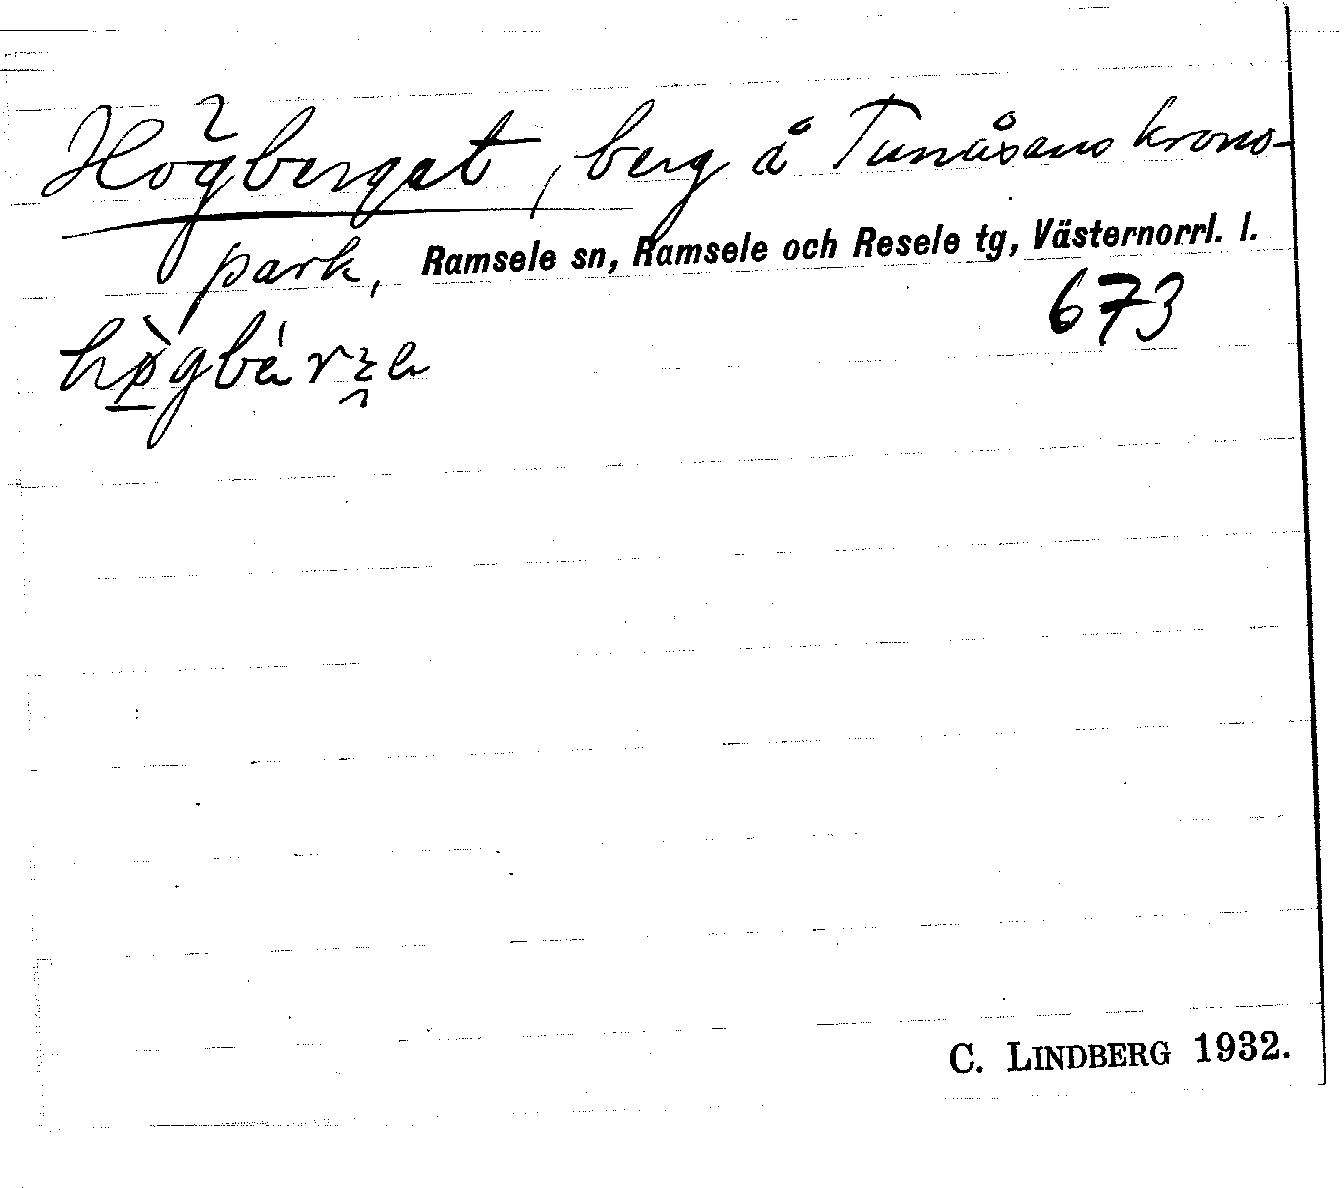 Högberget, berg å Tunåsens krono-
park, Ramsele sn, Ramsele och Resele tg, Västernorrl. l.
673
C. LINDBERG 1932.